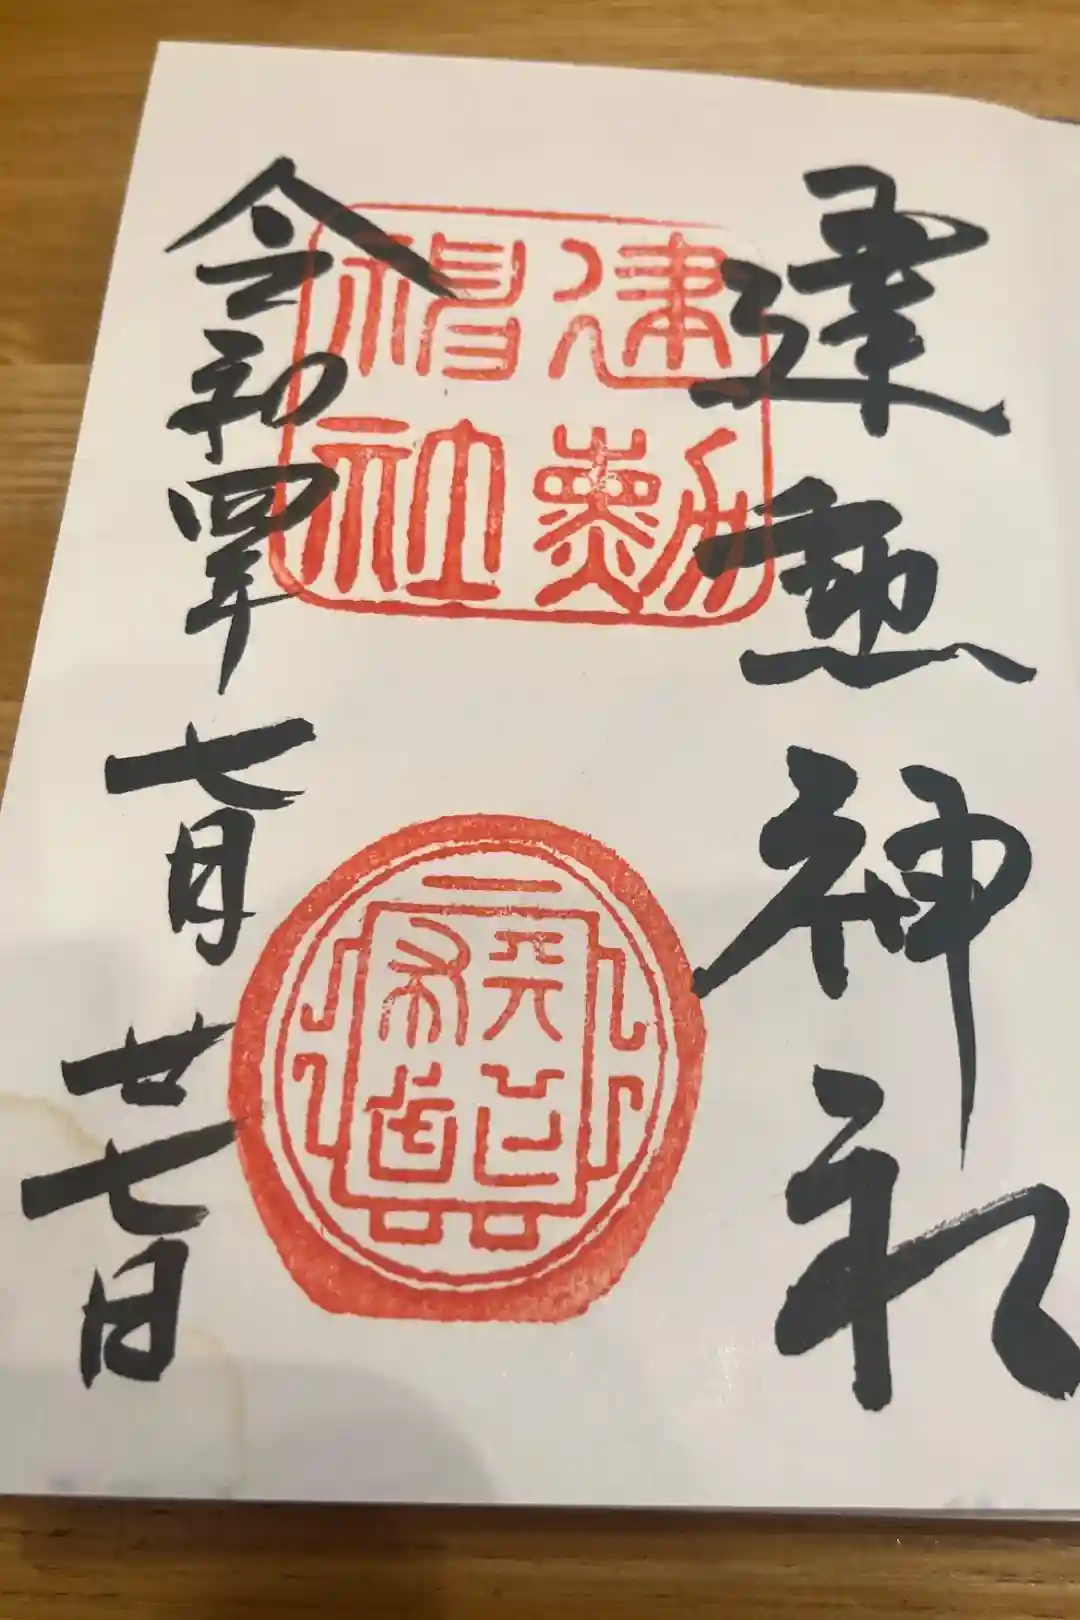 建勲神社
建勳
神社
天下
布武
令和四年七月廿七日